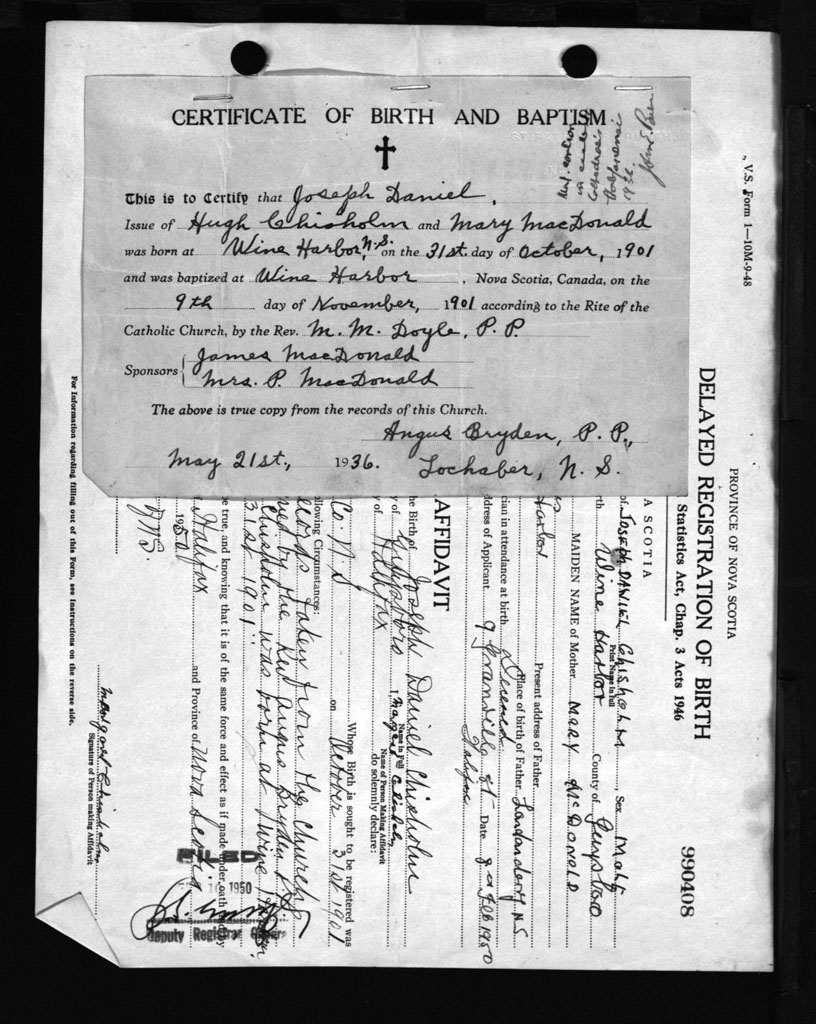 CERTIFICATE OF BIRTH AND BAPTISM
This is to Certify that Joseph Daniel,
Issue of Hugh Chisholm and Mary MacDonald
was born at Wine Harbor, N.S. on the 31st. day of October, 1901
and was baptized at Wine Harbor, Nova Scotia, Canada, on the
9th day of November, 1901 according to the Rite of the
Catholic Church, by the Rev. M. M. Doyle, P. P.
Sponsors James MacDonald
Mrs. P. MacDonald
The above is true copy from the records of this Church.
Angus Bryden, P. P.,
May 21st., 1936. Lochaber, N. S.
V.S. Form 1—10M-9-48
PROVINCE OF NOVA SCOTIA
DELAYED REGISTRATION OF BIRTH
990408
Statistics Act, Chap. 3 Acts 1946
A SCOTIA
of JOSEPH DANIEL Chisholm Sex Male
Print Name in full
th Wine Harbor County of
MAIDEN NAME of Mother MARY McDONALD
Present address of Father
Harbor Place of birth of Father Londonderry N.S.
cian in attendance at birth Deceased
ddress of Applicant 9 Granville St Date 9th Feb 1950
Halifax
AFFIDAVIT
he Birth of Joseph Daniel Chisholm
Name in Full
y of I, Margaret Chisholm
Name of Person Making Affidavit
y of Halifax do solemnly declare:
Whose Birth is sought to be registered was
Co. N S on October 31st 1901
ollowing Circumstances:
ecords taken from the Church
ned by the Rev Angus Bryden P.P.
Chisholm was born at Wine Harbor
31st 1901"
be true, and knowing that it is of the same force and effect as if made under oath and by
Halifax and Province of Nova Scotia
1950
FILED
1950
Deputy Registrar
Margaret Chisholm
Signature of Person making Affidavit
For Information regarding filling out of this Form, see Instructions on the reverse side.